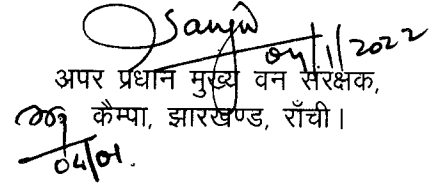 Sanjiv
04/1/2022
अपर प्रधान मुख्य वन संरक्षक,
कैम्पा, झारखण्ड, राँची।
04/01.